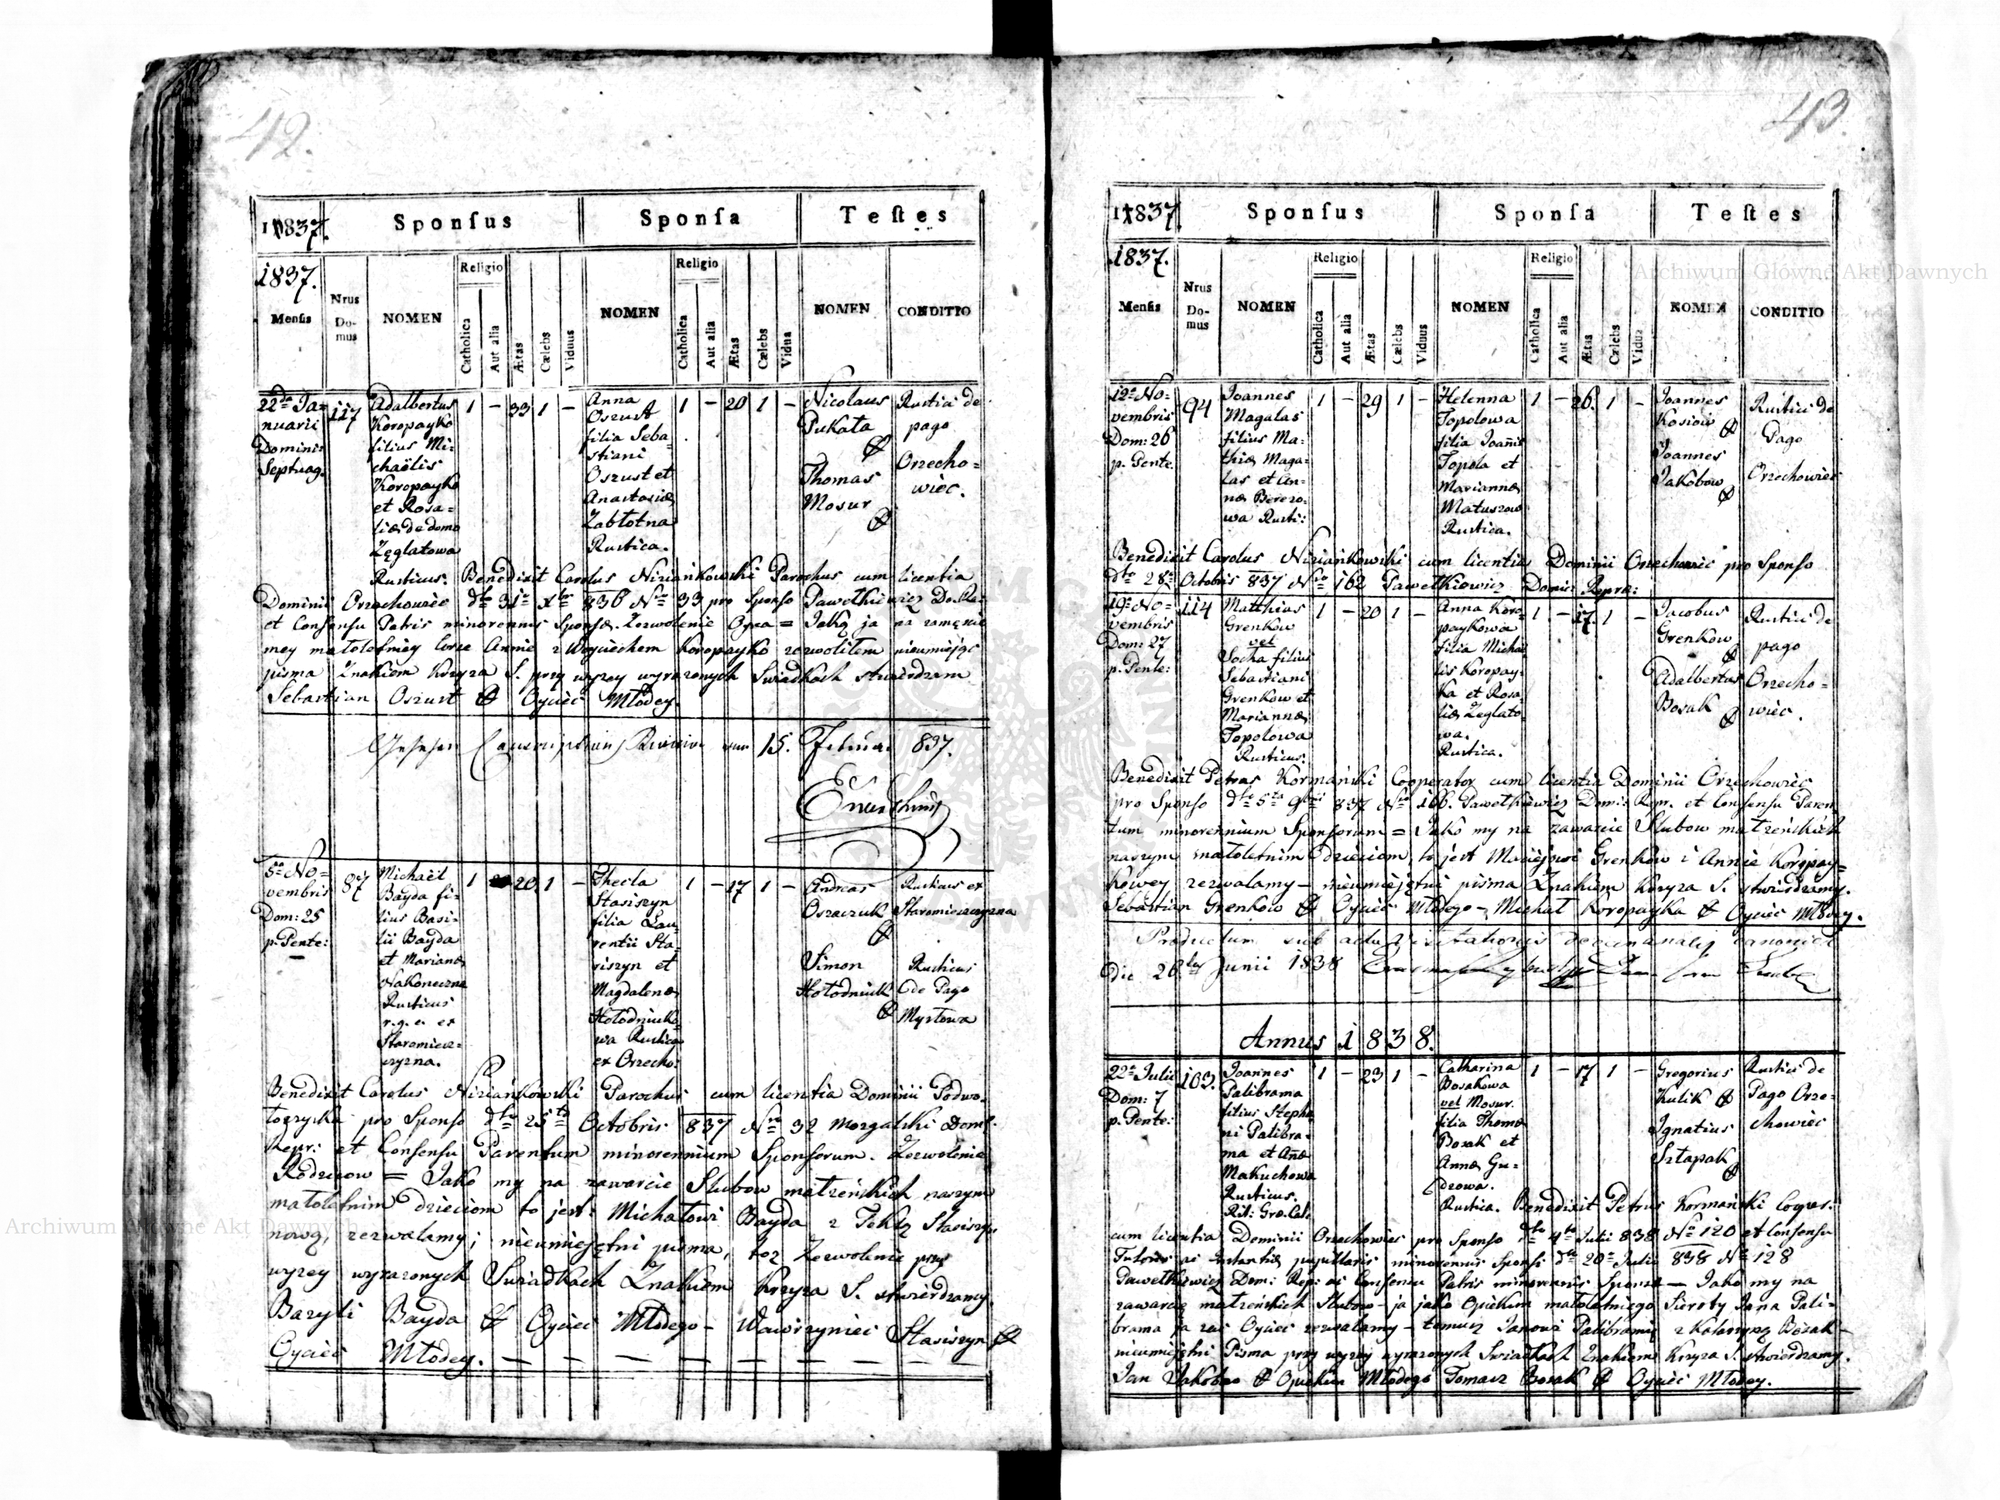 42.
1837. Sponsus Sponsa Testes
1837.
Mensis
Nrus Do-mus
NOMEN
Religio
Catholica
Aut alia
Ætas
Cælebs
Viduus
NOMEN
Religio
Catholica
Aut alia
Ætas
Cælebs
Vidua
NOMEN
CONDITIO
22da Ja=
nuarii
Dominica
Septuag.
117
Adalbertus
Koropayko
filius Mi-
chaëlis
Koropayko
et Rosa-
liæ de domo
Zęglatowa
Rusticus.
1 - 33 1 -
Anna
Oszust
filia Seba-
stiani
Oszust et
Anastasiæ
Zabłotna
Rustica.
1 - 20 1 -
Nicolaus
Pukała
Thomas
Mosur
Rustici de
pago
Orzecho=
wiec.
Benedixit Carolus Niziankowski Parochus cum licentia
Dominii Orzechowiec dto 31a Xbr 836 Nro 33 pro Sponso Pawełkiewicz Do. Re.
et Consensu Patris minorennis Sponsæ. Zezwolenie Oyca = Jako ja na zamęscie
mey małoletniey Corce Annie z Woyciechem Koropayko zezwoliłem nieumiejąc
pisma Znakiem Krzyza S. przy wyzey wyrazonych Swiadkach stwierdzam
Sebastian Oszust Oyciec Młodey.
15. Februar 837.
5a No=
vembris
Dom: 25
p. Pente:
87
Michael
Bayda fi-
lius Basi-
lii Bayda
et Mariannæ
Nakoneczna
Rusticus
r. g. c. ex
Staromiesz-
czyzna.
1 20 1 -
Thecla
Stasiszyn
filia Lau-
rentii Sta-
siszyn et
Magdalenæ
Hołodniuko-
wa Rustica
ex Orzecho:
1 - 17 1 -
Andreas
Oszaczuk
Simon
Hołodniuk
Rusticus ex
Staromieszczyzna
Rusticus
de Pago
Mysłowa
Benedixit Carolus Niziankowski Parochus cum licentia Dominii Podwo-
łoczyska pro Sponso dto 25ta Octobris 837 Nro 32 Morgalski Domi.
Repr: et Consensu Parentum minorennium Sponsorum. Zezwolenie
Rodzicow = Jako my na zawarcie Slubow małzeńskich naszym
małoletnim dzieciom to jest: Michałowi Bayda z Teklą Stasiszyn
nową, zezwalamy; nieumiejętni pisma, toz Zezwolenie przy
wyzey wyrazonych Swiadkach Znakiem Krzyza S. stwierdzamy.
Bazyli Bayda Oyciec Młodego - Wawrzyniec Stasiszyn
Oyciec Młodey.
43.
1837 Sponsus Sponsa Testes
1837.
Mensis
Nrus Do-mus
NOMEN
Religio
Catholica
Aut alia
Ætas
Cælebs
Viduus
NOMEN
Religio
Catholica
Aut alia
Ætas
Cælebs
Vidua
NOMEN
CONDITIO
12a No=
vembris
Dom: 26
p. Pente.
94
Joannes
Magalas
filius Ma-
thiæ Maga-
las et An-
næ Berezo-
wa Rusti:
1 - 29 1 -
Helenna
Topolowa
filia Joañis
Topola et
Mariannæ
Matuszow
Rustica.
1 - 26. 1 -
Joannes
Kosiow
Joannes
Jakobow
Rustici de
Pago
Orzechowiec
Benedixit Carolus Niziankowski cum licentia Dominii Orzechowiec pro Sponso
dto 28a Octobris 837 Nro 162 Pawełkiewicz Domi: Repræ:
19a No=
vembris
Dom: 27
p. Pente:
114
Matthias
Grenkow
vel
Socha filius
Sebastiani
Grenkow et
Mariannæ
Topolowa
Rusticus.
1 - 20 1 -
Anna Koro-
paykowa
filia Micha-
lis Koropay-
ka et Rosa-
liæ Zeglato-
wa.
Rustica.
1 - 17. 1 -
Jacobus
Grenkow
Adalbertus
Bosak
Rustici de
pago
Orzecho=
wiec.
Benedixit Petrus Kormański Cooperator cum licentia Dominii Orzechowiec
pro Sponso dto 5ta 9bri 837 Nro 166. Pawełkiewicz Domi: Repr. et Consensu Paren-
tum minorennium Sponsorum = Jako my na zawarcie Slubow małzeńskich
naszym małoletnim dzieciom, to jest Maciejowi Grenkow i Annie Koropay=
kowey zezwalamy - nieumiejętni pisma Znakiem Krzyza S. stwierdzamy.
Sebastian Grenkow Oyciec Młodego - Michał Koropayka Oyciec Młodey.
Productum sub actu Visitationis decanalis canonica
die 26 Junii 1838
Annus 1838.
22a Julii
Dom: 7
p. Pente:
103.
Joannes
Palibrama
filius Stepha-
ni Palibra-
ma et Añæ
Makuchowa
Rusticus.
Rit: Græ. Cat:
1 - 23 1 -
Catharina
Bosakowa
vel Mosur.
filia Thomæ
Bosak et
Annæ Gu-
drowa.
Rustica.
1 - 17 1 -
Gregorius
Kulik
Ignatius
Sztapak
Rustici de
Pago Orze-
chowiec
Benedixit Petrus Kormański Coope.
cum licentia Dominii Orzechowiec pro Sponso dto 4ta Julii 838 Nro 120 et Consensu
Tutoris ac Instantiæ pupillaris minorennis Sponsi dto 20a Julii 838 Nro 128
Pawełkiewicz Dom: Rep: ac Consensu Patris minorennis Sponsæ - Jako my na
zawarcie małzeńskich Slubow - ja jako Opiekun małoletniego Sieroty Jana Pali-
brama ja zas Oyciec zezwalamy - temuz Janowi Palibramie z Katarzyną Bosak -
nieumiejętni Pisma przy wyzey wyrazonych Swiadkach Znakiem Krzyza S. stwierdzamy.
Jan Jakobow Opiekun Młodego Tomasz Bosak Oyciec Młodey.
Archiwum Główne Akt Dawnych
Archiwum Główne Akt Dawnych